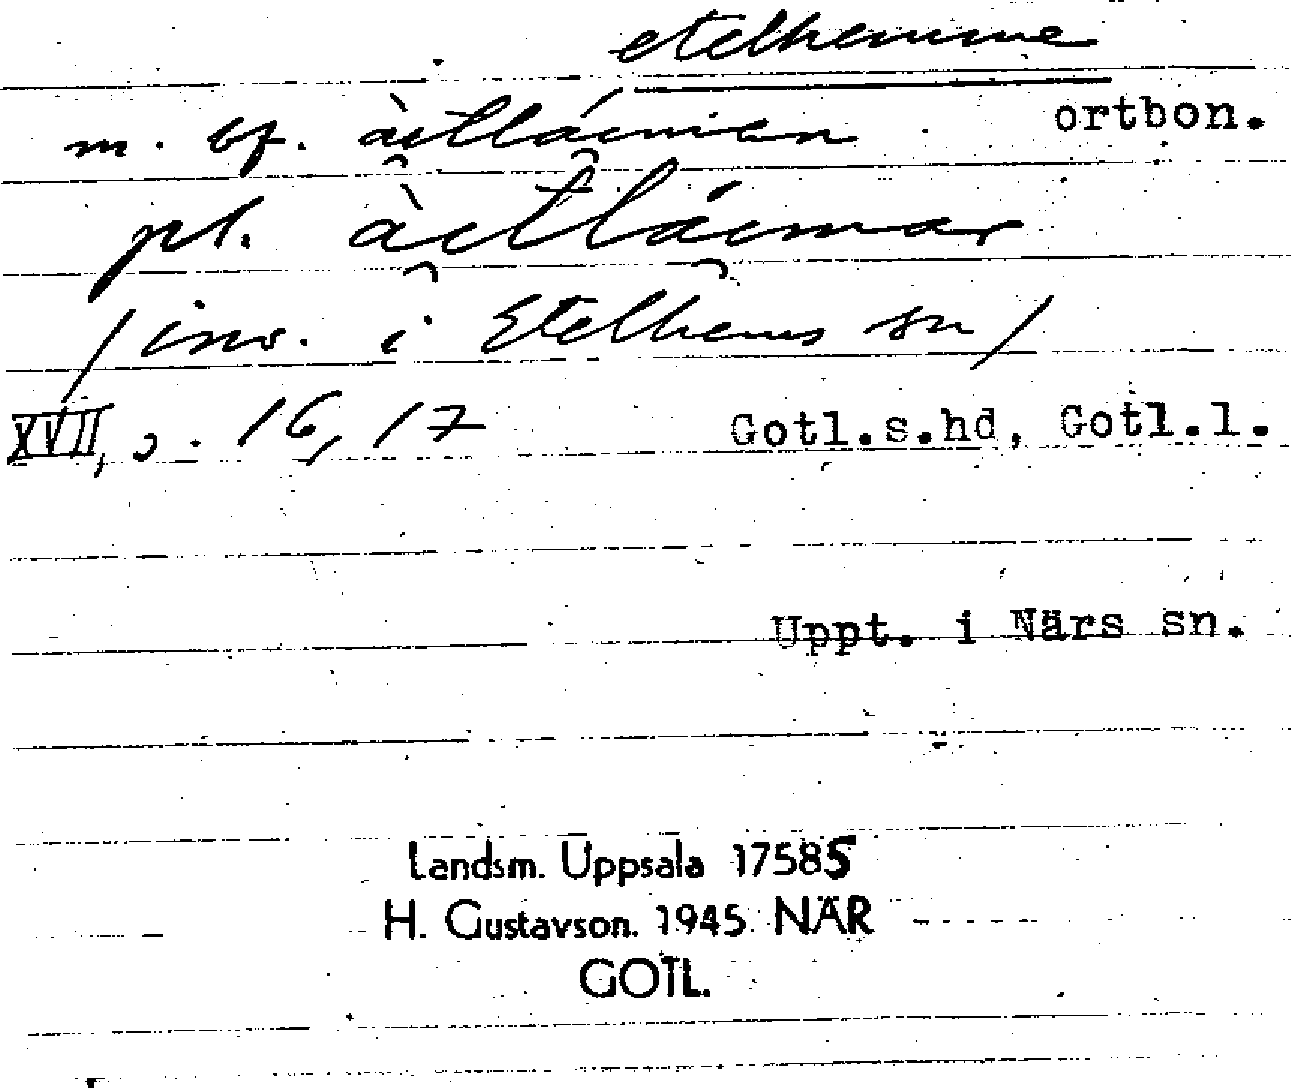 etelhemme
ortbon.
m. bf. àitláimien
pl. àitláimar
/inv. i Etelhems sn/
XVII, o. 16, 17 Gotl.s.hd, Gotl.l.
Uppt. i Närs sn.
Landsm. Uppsala 17585
H. Gustavson. 1945 NÄR
GOTL.